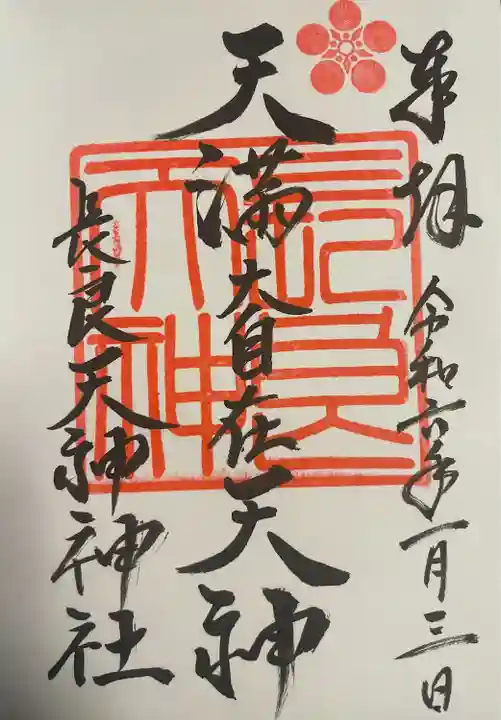 奉拝
令和六年一月三日
天満大自在天神
長良天神神社
長良
天神